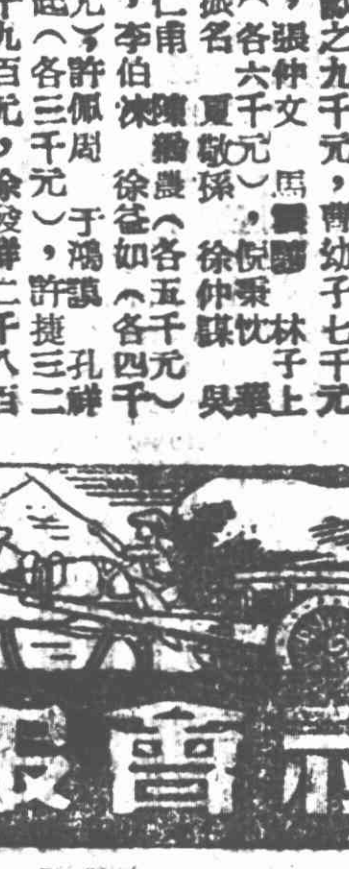 之九千元，曹幼子七千元
，張仲文　馬　　林子上
（各六千元），倪秉忱　華
振名　夏敬孫　徐仲謀　吳
仁甫　陳　　（各五千元）
，李伯　　徐益如（各四千
元），許佩周　于鴻謨　孔祥
　（各三千元），許捷三二
千九百元，徐　祥二千八百
會